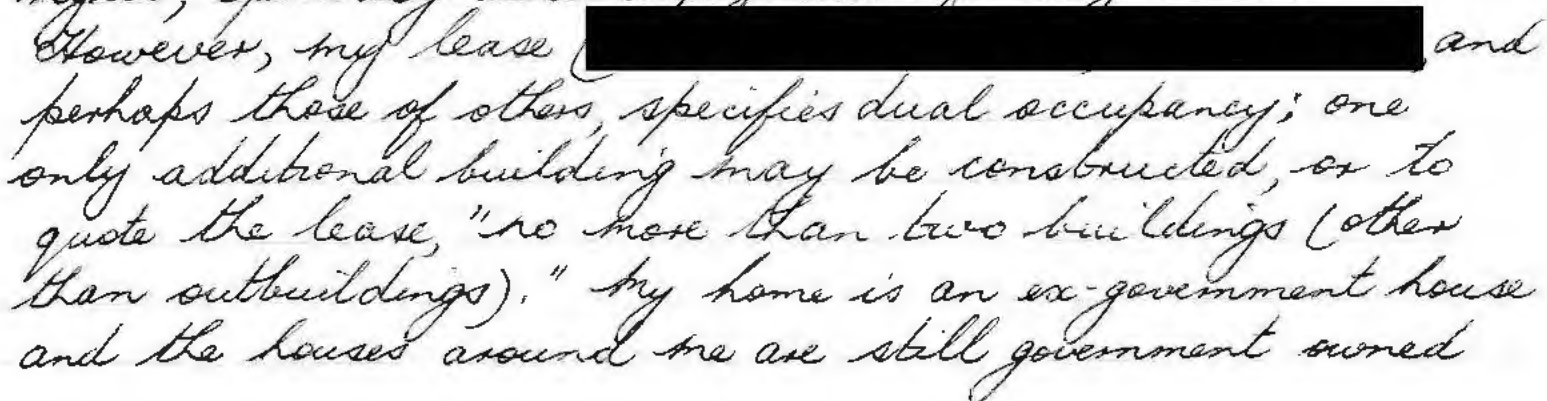 However, my lease (
and
perhaps those of others, specifies dual occupancy; one
only additional building may be constructed, or to
quote the lease, "no more than two buildings (other
than outbuildings)." My home is an ex-government house
and the houses around me are still government owned